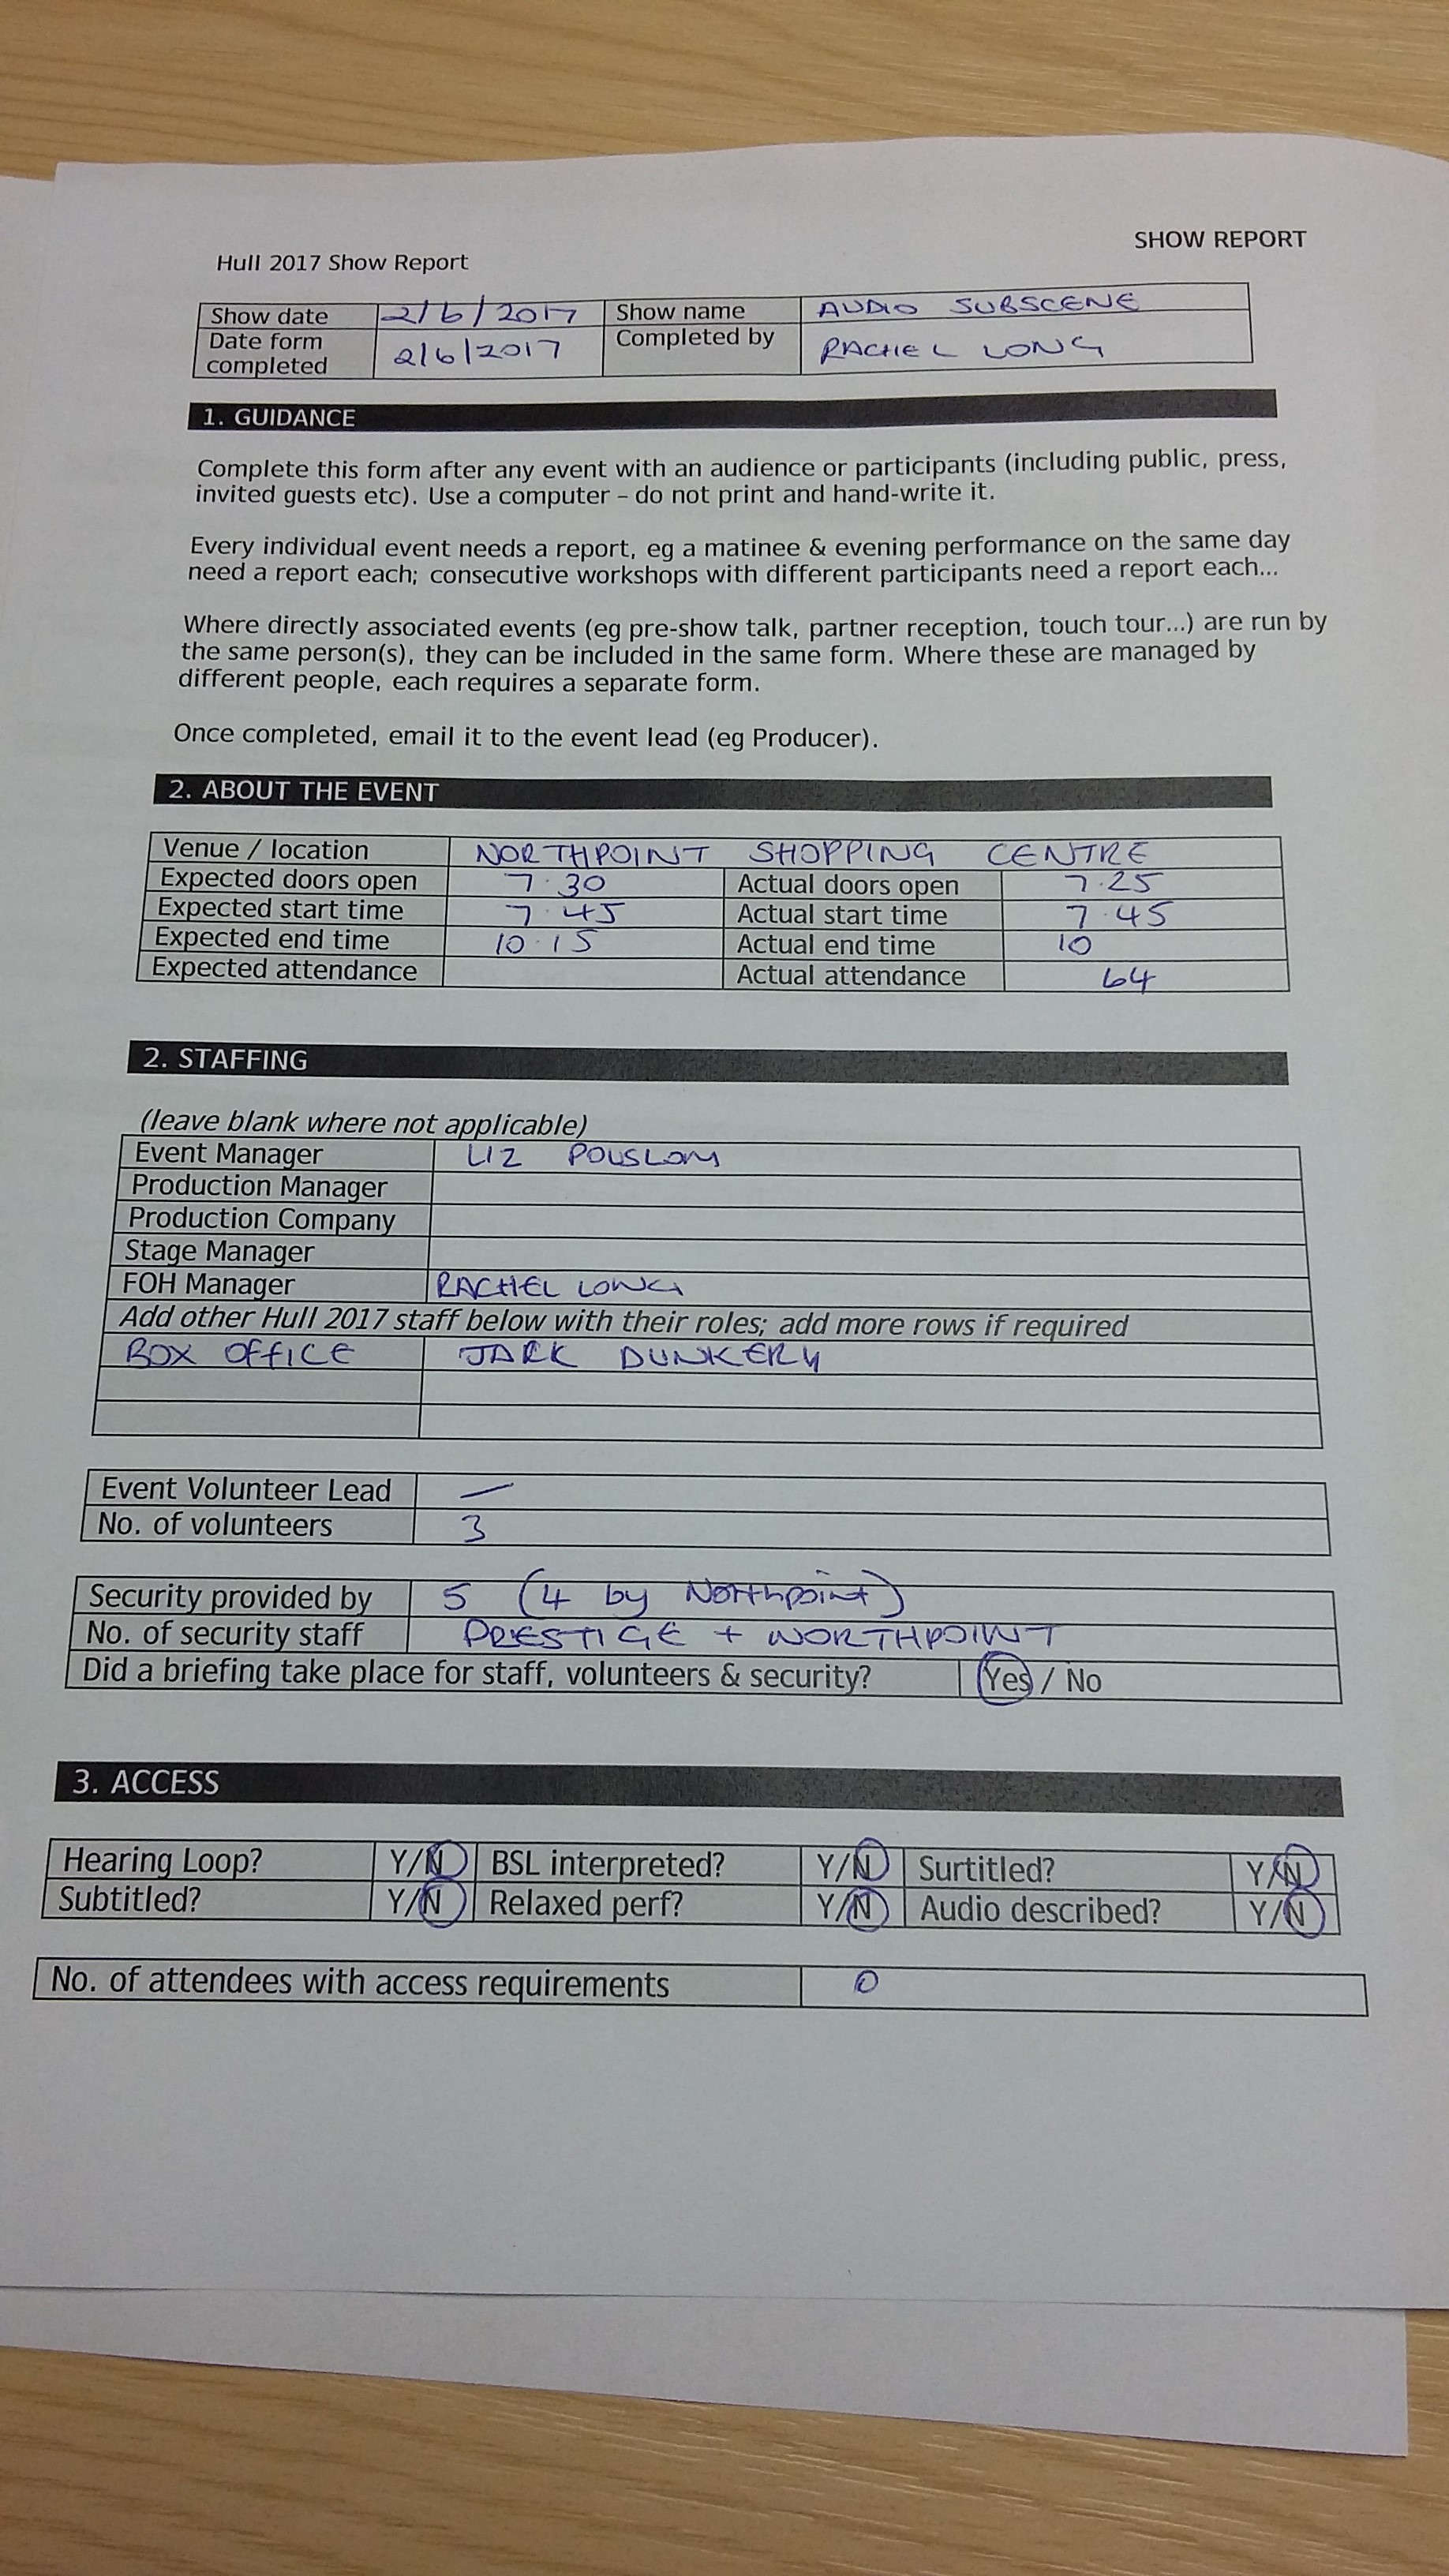 SHOW REPORT
Hull 2017 Show Report
Show date 2/6/2017 Show name AUDIO SUBSCENE
Date form completed 2/6/2017 Completed by RACHEL LONG
1. GUIDANCE
Complete this form after any event with an audience or participants (including public, press,
invited guests etc). Use a computer – do not print and hand-write it.
Every individual event needs a report, eg a matinee & evening performance on the same day
need a report each; consecutive workshops with different participants need a report each...
Where directly associated events (eg pre-show talk, partner reception, touch tour...) are run by
the same person(s), they can be included in the same form. Where these are managed by
different people, each requires a separate form.
Once completed, email it to the event lead (eg Producer).
2. ABOUT THE EVENT
Venue / location NORTHPOINT SHOPPING CENTRE
Expected doors open 7.30 Actual doors open 7.25
Expected start time 7.45 Actual start time 7.45
Expected end time 10.15 Actual end time 10
Expected attendance Actual attendance 64
2. STAFFING
(leave blank where not applicable)
Event Manager LIZ
Production Manager
Production Company
Stage Manager
FOH Manager RACHEL LONG
Add other Hull 2017 staff below with their roles; add more rows if required
BOX OFFICE DUNKERLY
Event Volunteer Lead —
No. of volunteers 3
Security provided by 5 (4 by Northpoint)
No. of security staff PRESTIGE + NORTHPOINT
Did a briefing take place for staff, volunteers & security? Yes / No
3. ACCESS
Hearing Loop? Y/N BSL interpreted? Y/N Surtitled? Y/N
Subtitled? Y/N Relaxed perf? Y/N Audio described? Y/N
No. of attendees with access requirements 0